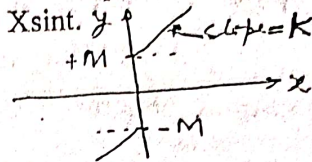 Xsint. y
slope = K
+M
x
-M